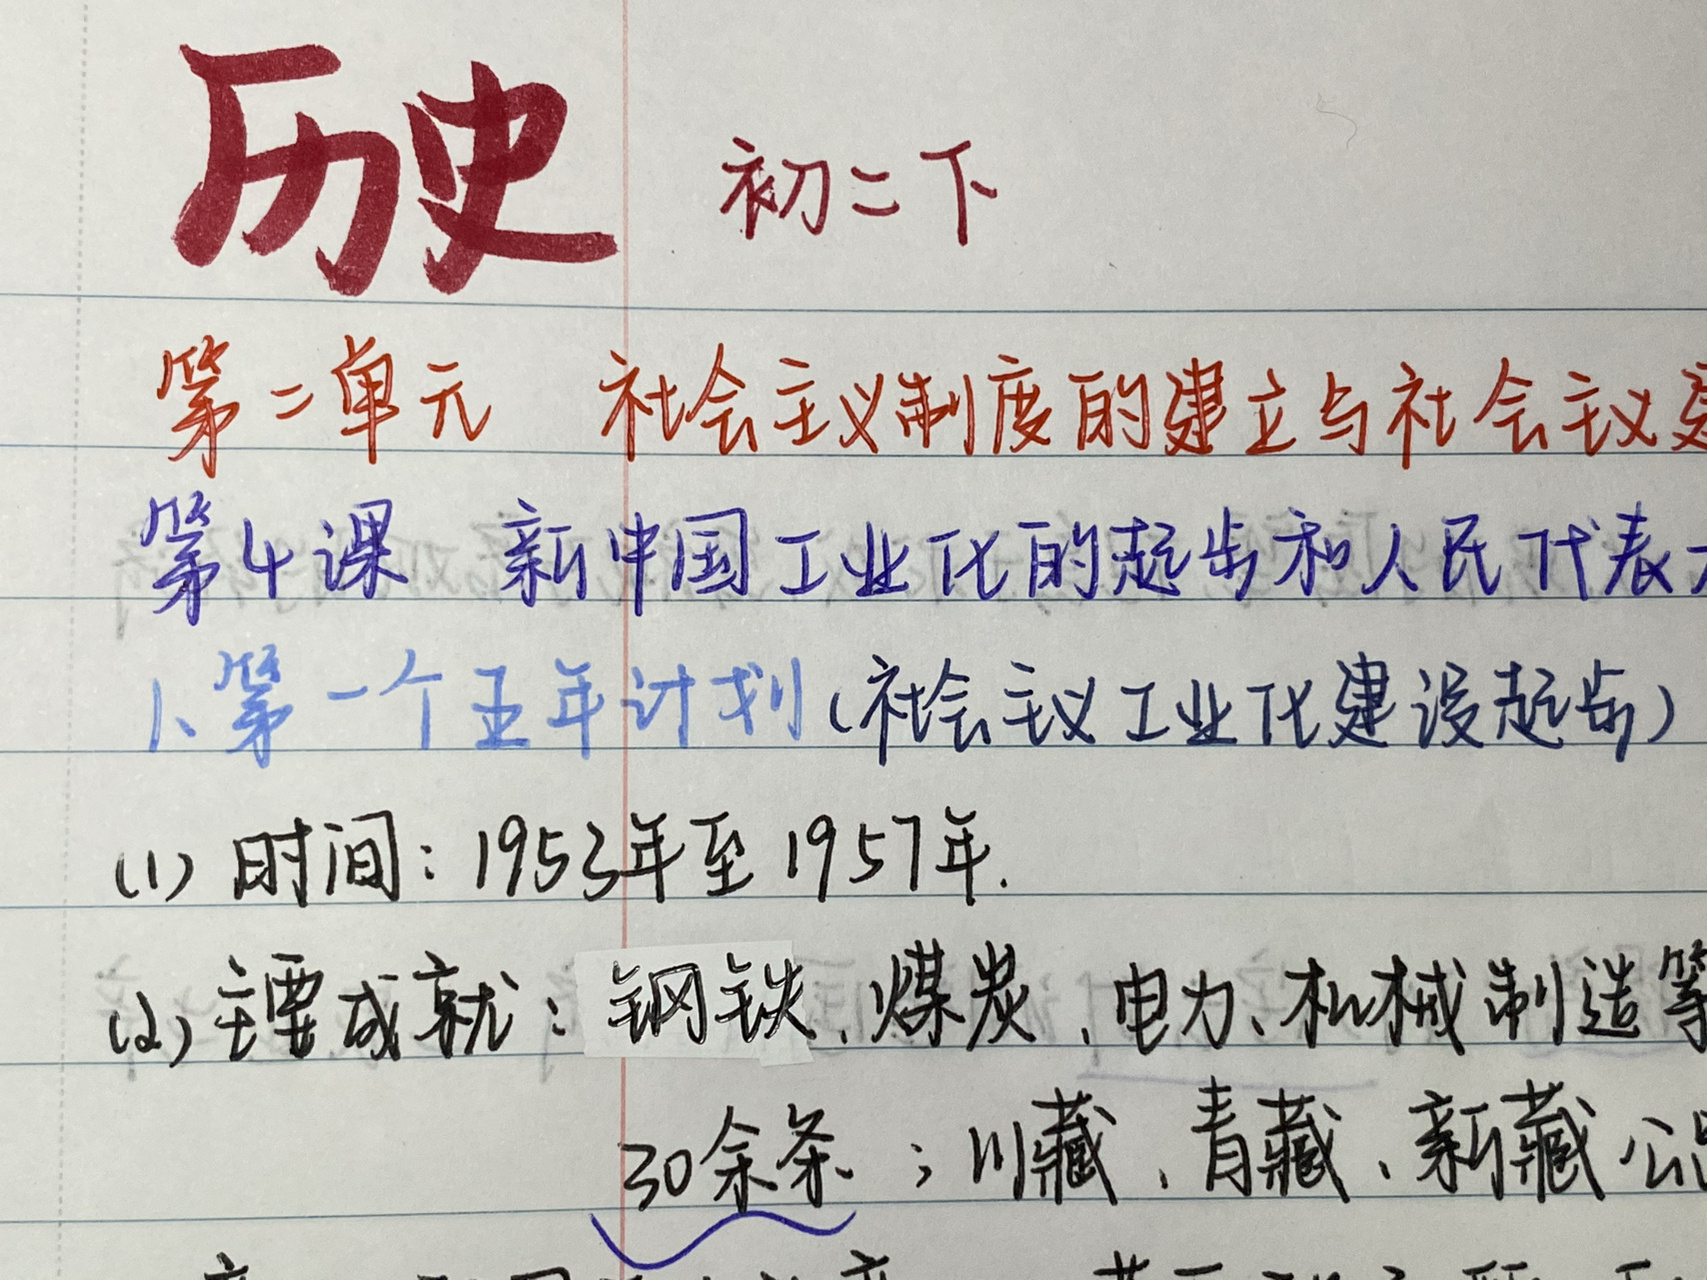 历史 初二下
第二单元 社会主义制度的建立与社会主义建
第4课 新中国工业化的起步和人民代表大
1、第一个五年计划(社会主义工业化建设起步)
(1) 时间:1953年至1957年.
(2) 主要成就:钢铁、煤炭、电力、机械制造等
30余条;川藏、青藏、新藏公